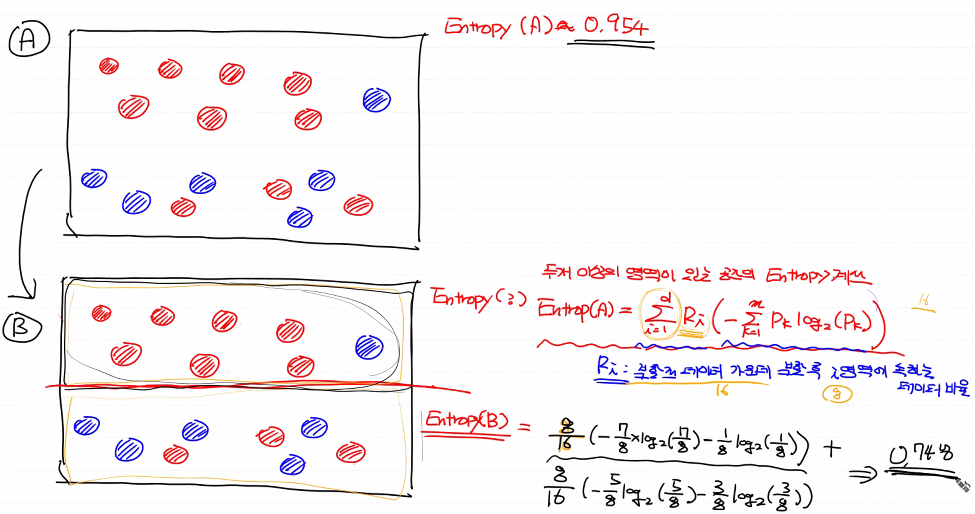 A
Entropy (A) ≈ 0.954
두개 이상의 영역이 있는 공간의 Entropy 계산
B
Entropy(
Entrop(A) = \sum_{i=1}^{d} Ri ( - \sum_{k=1}^{m} Pk log2 (Pk) )
16
Ri : 분할전 데이터 가운데 분할후 i영역에 속하는 데이터 비율
16
8
Entrop(B) = 8/16 ( -7/8 x log2(7/8) - 1/8 log2(1/8) ) +
8/16 ( -5/8 log2(5/8) - 3/8 log2(3/8) )
⇒ 0.748